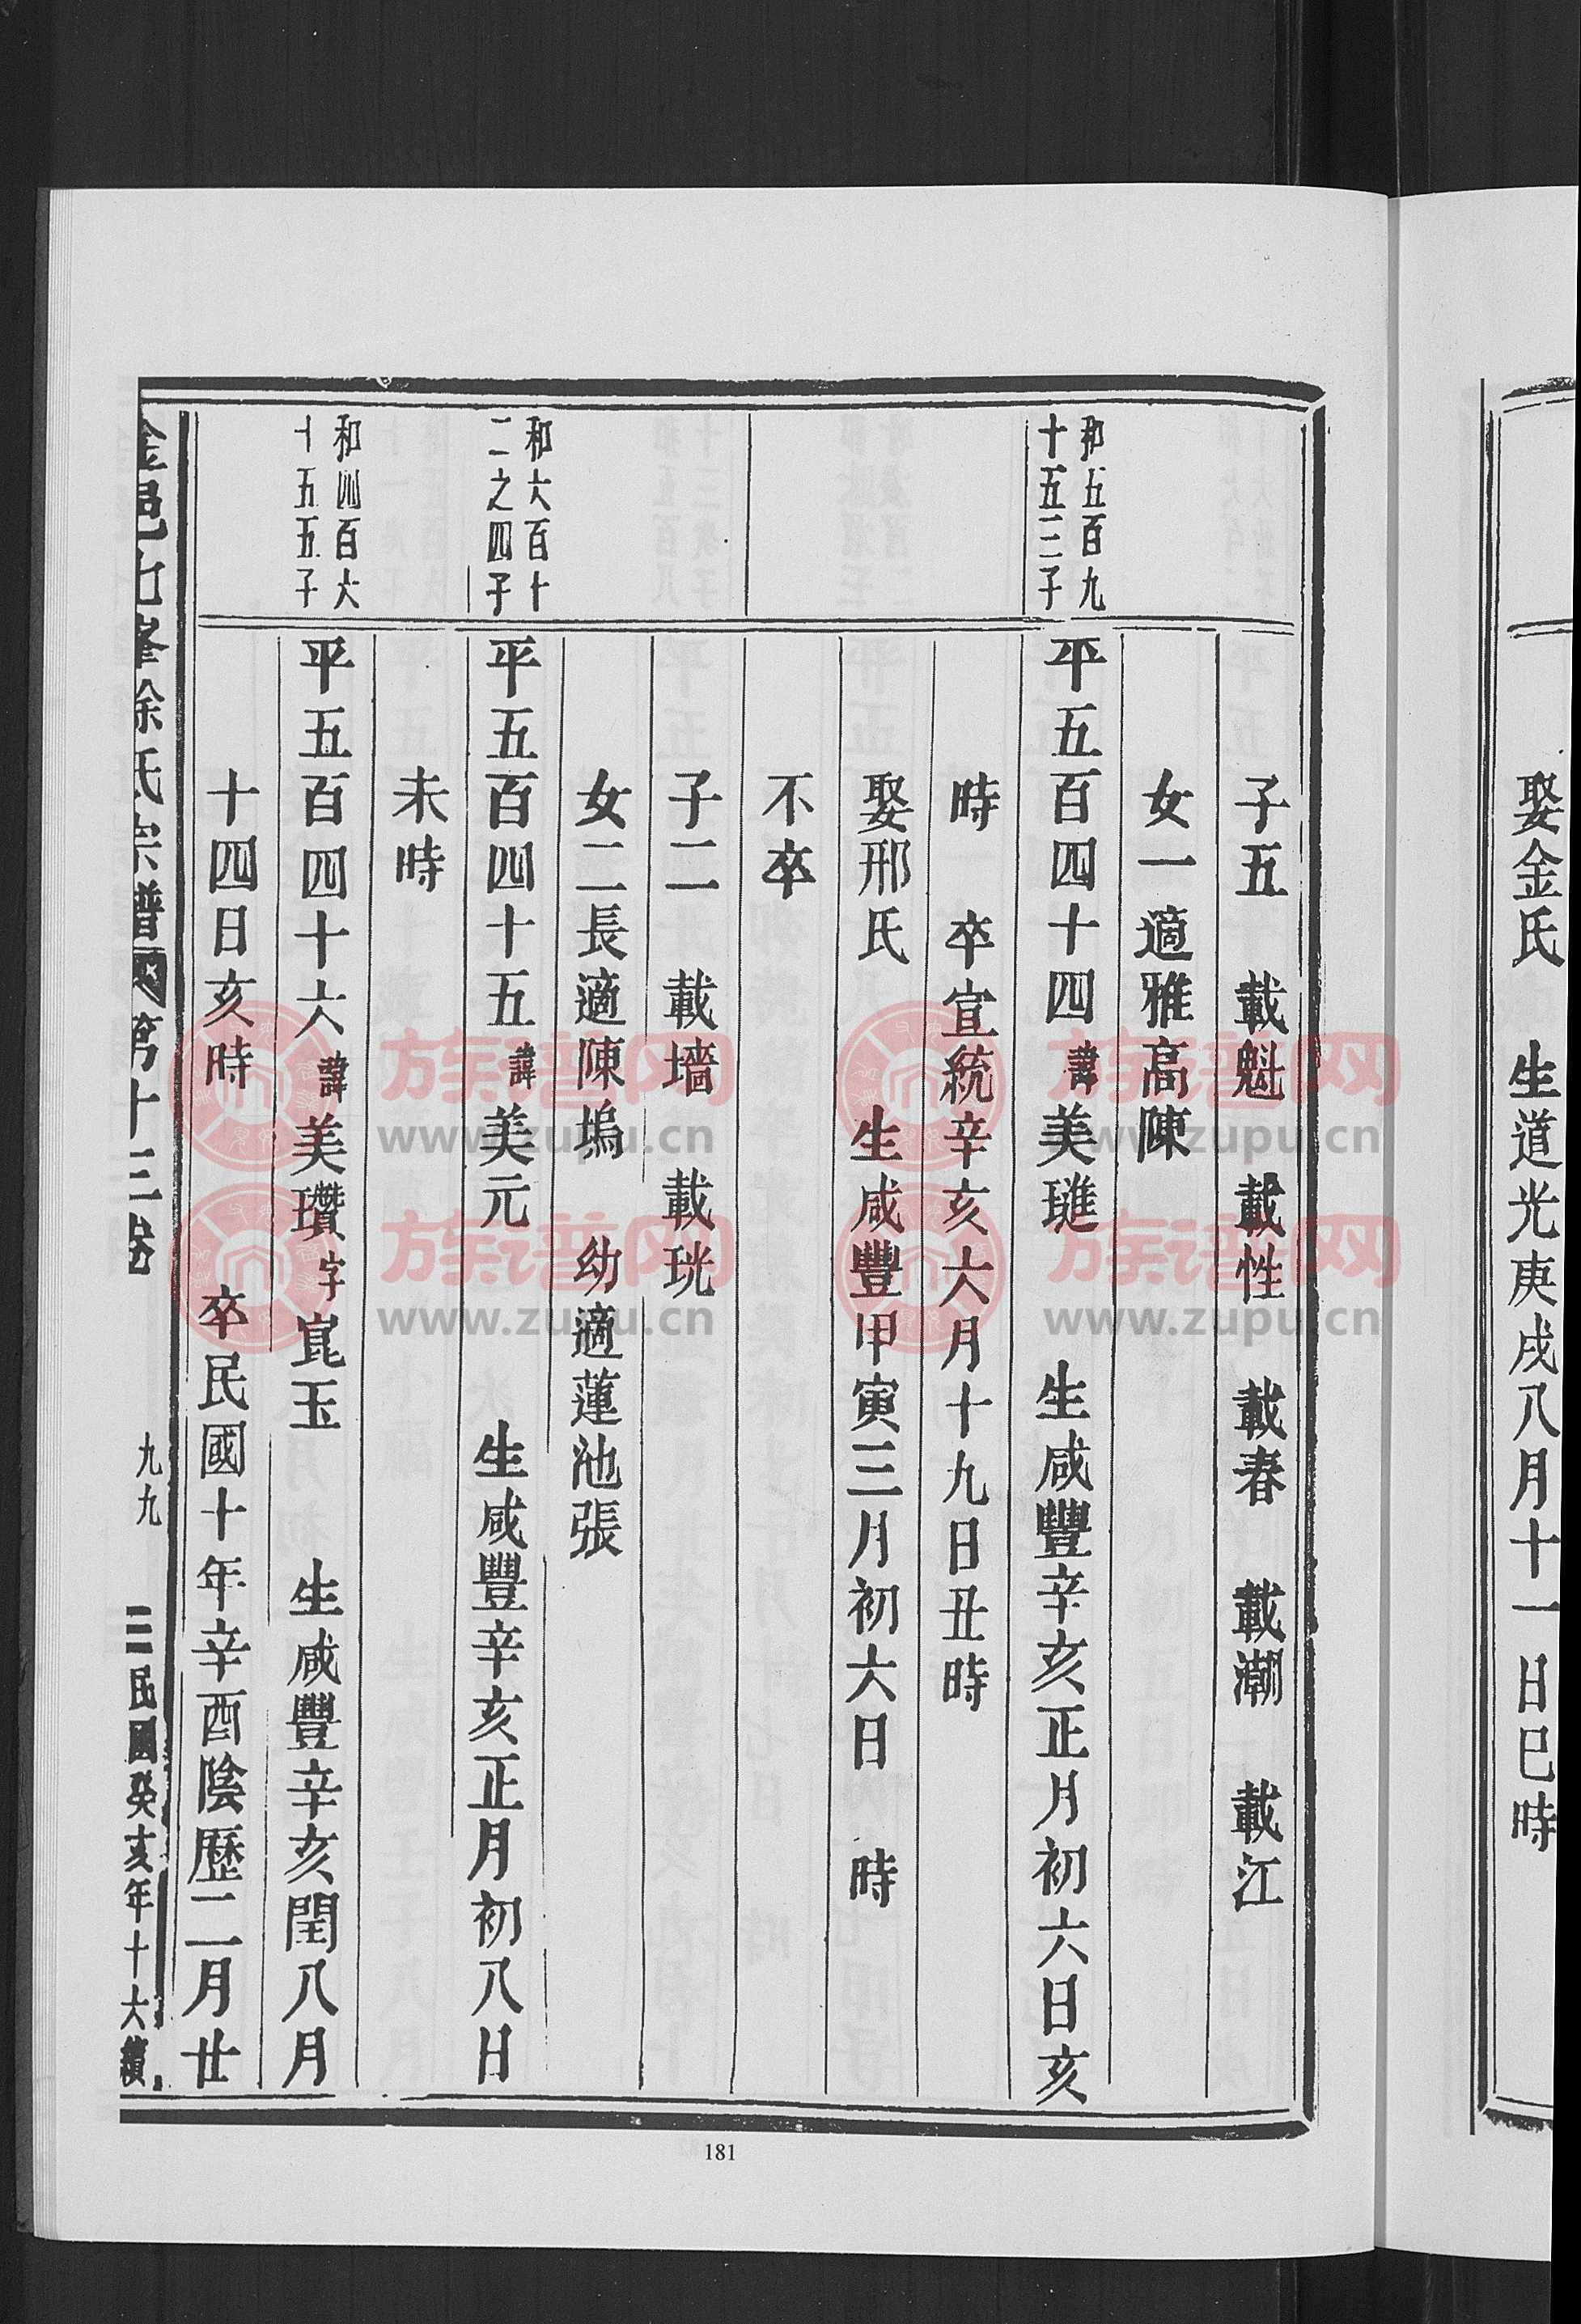 娶金氏 生道光庚戌八月十一日巳時
子五 載魁 載性 載春 載潮 載江
女一適雅高陳
和五百九
十五三子
平五百四十四諱美璡 生咸豐辛亥正月初六日亥
時 卒宣統辛亥六月十九日丑時
娶邢氏 生咸豐甲寅三月初六日 時
不卒
子二 載墻 載珖
女二長適陳塢 幼適蓮池張
和六百十
二之四子
平五百四十五諱美元 生咸豐辛亥正月初八日
未時
和四百六
十五五子
平五百四十六諱美瓚字崑玉 生咸豐辛亥閏八月
十四日亥時 卒民國十年辛酉陰歷二月廿
金邑七峯徐氏宗譜 第十三卷 九九 民國癸亥年十六續
181
族谱网
www.zupu.cn
族谱网
www.zupu.cn
族谱网
www.zupu.cn
族谱网
www.zupu.cn